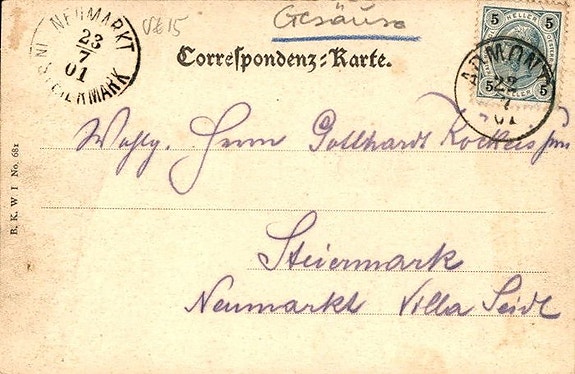 NEUMARKT
IN STEIERMARK
23
7
01
Gesäuse
Correspondenz-Karte.
5 HELLER 5
5 5
ADMONT
22
7
01
B. K. W. I No. 681
Wohlg. Herrn Gotthardt
Steiermark
Neumarkt Villa Seidl